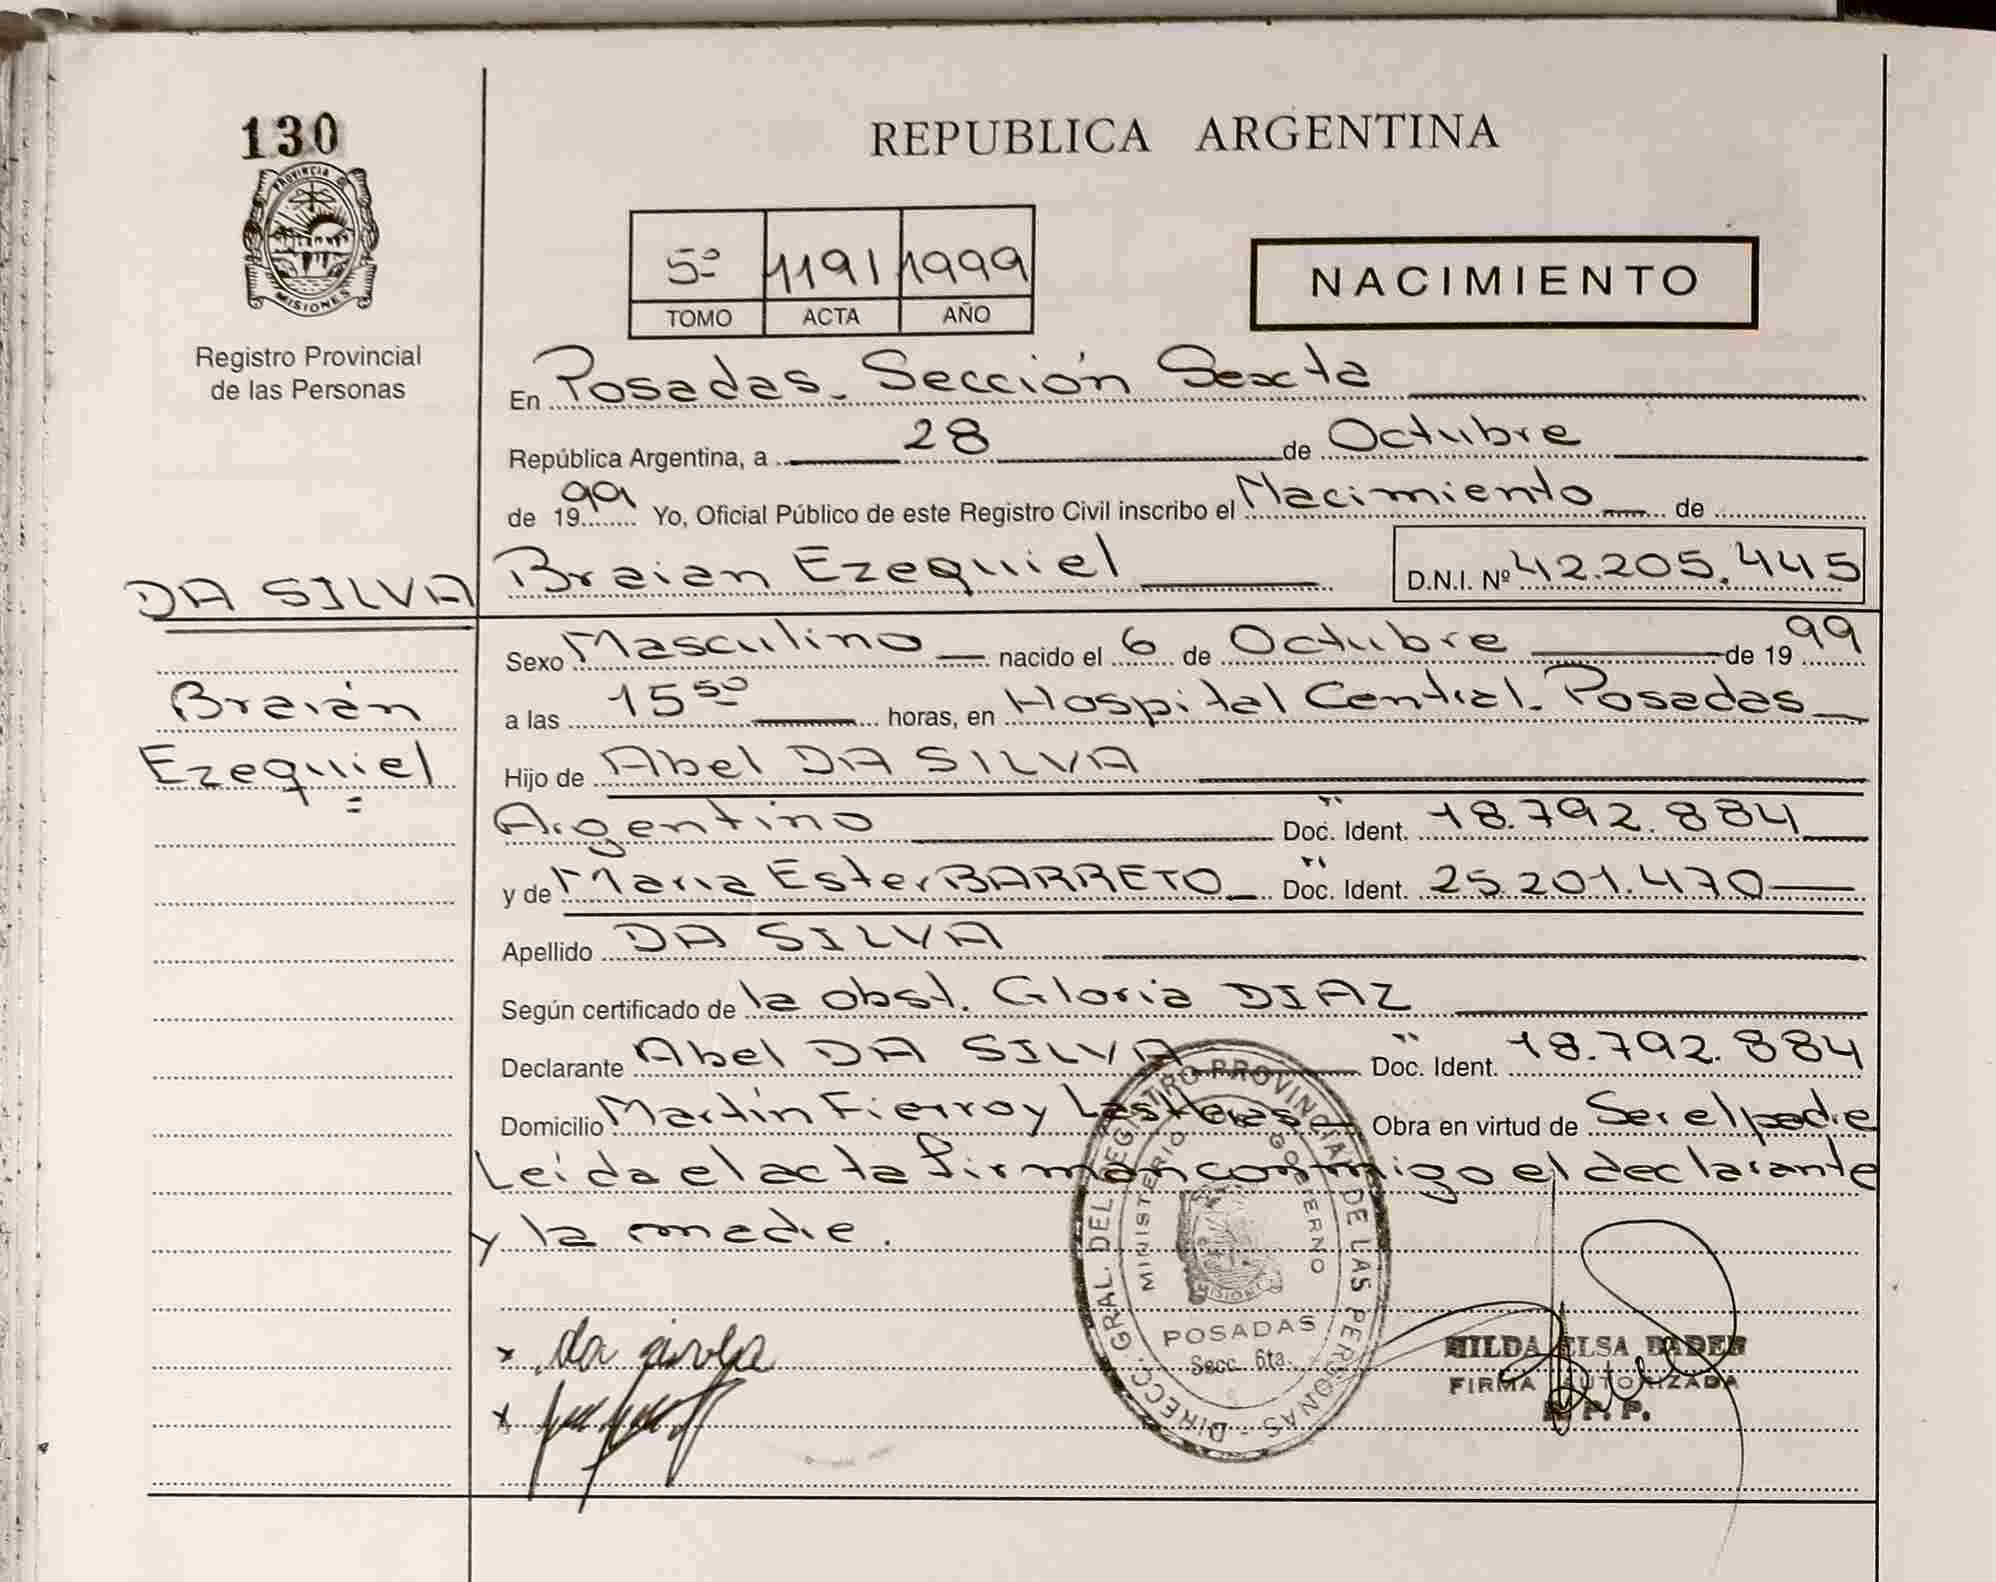 130
PROVINCIA DE
MISIONES
Registro Provincial
de las Personas
DA SILVA
Braián
Ezequiel
REPUBLICA ARGENTINA
5º 1191 1999
TOMO ACTA AÑO
NACIMIENTO
En Posadas. Sección Sexta
República Argentina, a 28 de Octubre
de 1999 Yo, Oficial Público de este Registro Civil inscribo el Nacimiento de
Braian Ezequiel D.N.I. Nº 42.205.445
Sexo Masculino nacido el 6 de Octubre de 1999
a las 15⁵⁰ horas, en Hospital Central. Posadas
Hijo de Abel DA SILVA
Argentino Doc. Ident. 18.792.884
y de Maria Ester BARRETO Doc. Ident. 25.201.470
Apellido DA SILVA
Según certificado de la obst. Gloria DIAZ
Declarante Abel DA SILVA Doc. Ident. 18.792.884
Domicilio Martín Fierro y Las Heras Obra en virtud de Ser el padre
Leída el acta firman conmigo el declarante
y la madre.
DIRECC. GRAL. DEL REGISTRO PROVINCIAL DE LAS PERSONAS
MINISTERIO GOBIERNO
MISIONES
POSADAS
Secc. 6ta.
x da silva
x
HILDA ELSA BADER
FIRMA AUTORIZADA
R. P. P.